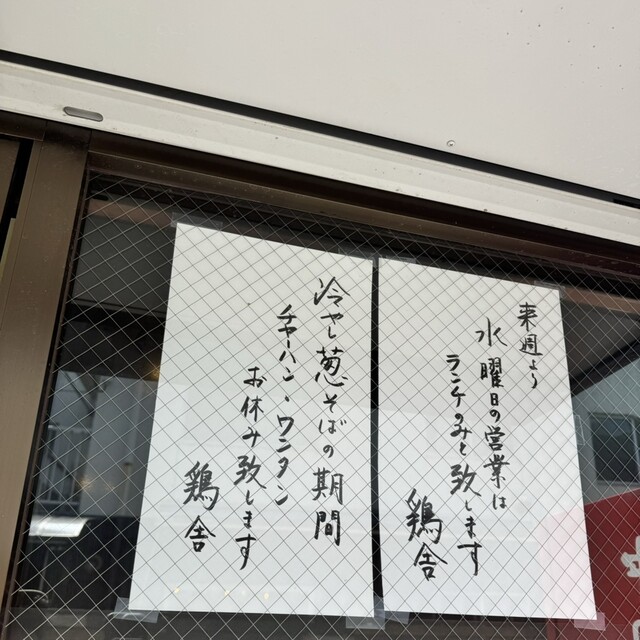 来週より
水曜日の営業は
ランチのみと致します
鶏舎
冷やし葱そばの期間
チャーハン、ワンタン
お休み致します
鶏舎